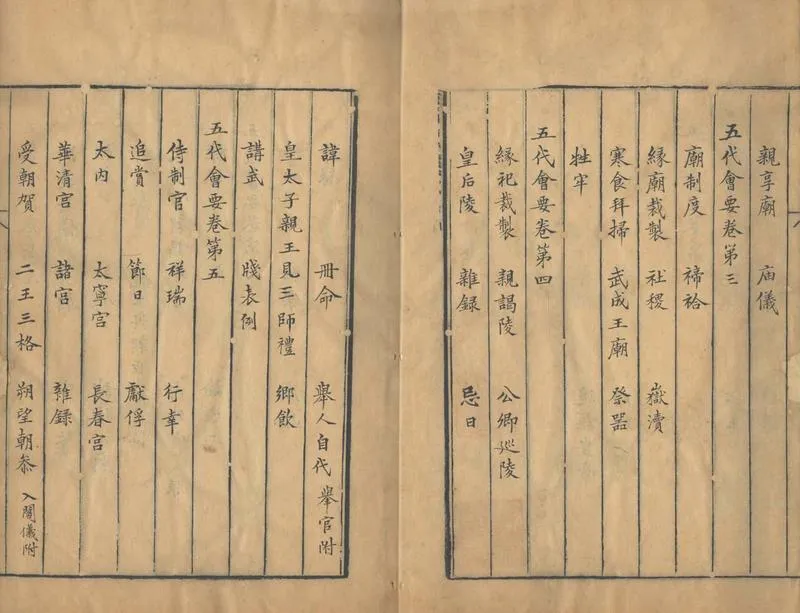 親享廟 庙儀
五代會要卷第三
廟制度 禘祫
緣廟裁製 社稷 嶽瀆
寒食拜掃 武成王廟 祭器
牲牢
五代會要卷第四
緣祀裁製 親謁陵 公卿巡陵
皇后陵 雜録 忌日
諱 冊命 舉人自代 舉官附
皇太子親王見三師禮 鄉飲
講武 牋表例
五代會要卷第五
侍制官 祥瑞 行幸
追賞 節日 獻俘
太内 太寧宮 長春宮
華清宮 諸宫 雜録
受朝賀 二王三格 朔望朝叅 入閣儀附